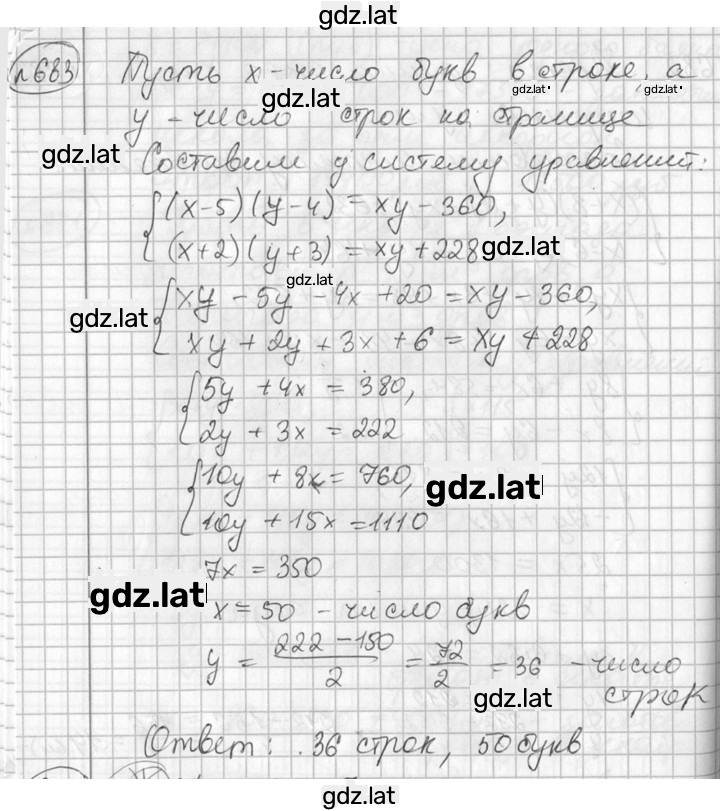 gdz.lat
n683 Пусть x - число букв в строке, а
gdz.lat gdz.lat gdz.lat
y - число строк на странице
gdz.lat
Составим и систему уравнений:
(x-5)(y-4) = xy - 360,
(x+2)(y+3) = xy + 228
gdz.lat
gdz.lat
xy - 5y - 4x + 20 = xy - 360,
gdz.lat
xy + 2y + 3x + 6 = xy + 228
5y + 4x = 380,
2y + 3x = 222
10y + 8x = 760,
gdz.lat
10y + 15x = 1110
7x = 350
gdz.lat
x = 50 - число букв
y = (222 - 150)/2 = 72/2 = 36 - число
gdz.lat
строк
Ответ: 36 строк, 50 букв
gdz.lat